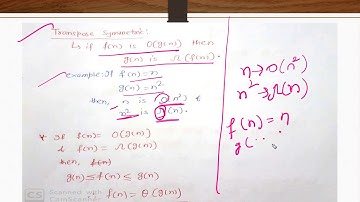 Transpose Symmetric:
Ls if f(n) is O(g(n)) then
g(n) is Ω(f(n)).
example: If f(n)=n
g(n)=n²
then, n is O(n²) &
n² is Ω(n)
* If f(n)= O(g(n))
& f(n)= Ω(g(n))
then, f(n)
g(n)≤f(n)≤g(n)
f(n)= θ(g(n))
n→O(n²)
n²→Ω(n)
f(n)=n
g(
CS Scanned with
CamScanner